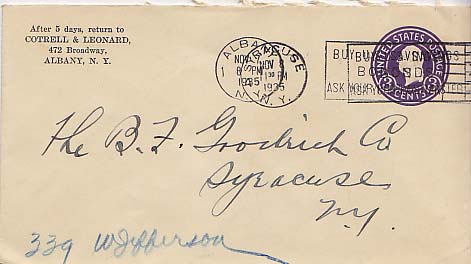 After 5 days, return to
COTRELL & LEONARD,
472 Broadway,
ALBANY, N. Y.
ALBANY
SYRACUSE
NOV
NOV
8 PM
30 PM
1935
1935
N.Y.
N.Y.
1
BUY U.S. SAVINGS
BONDS
ASK YOUR
UNITED STATES POSTAGE
CENTS
The B. F. Goodrich Co
Syracuse
N.Y.
339 W Jefferson